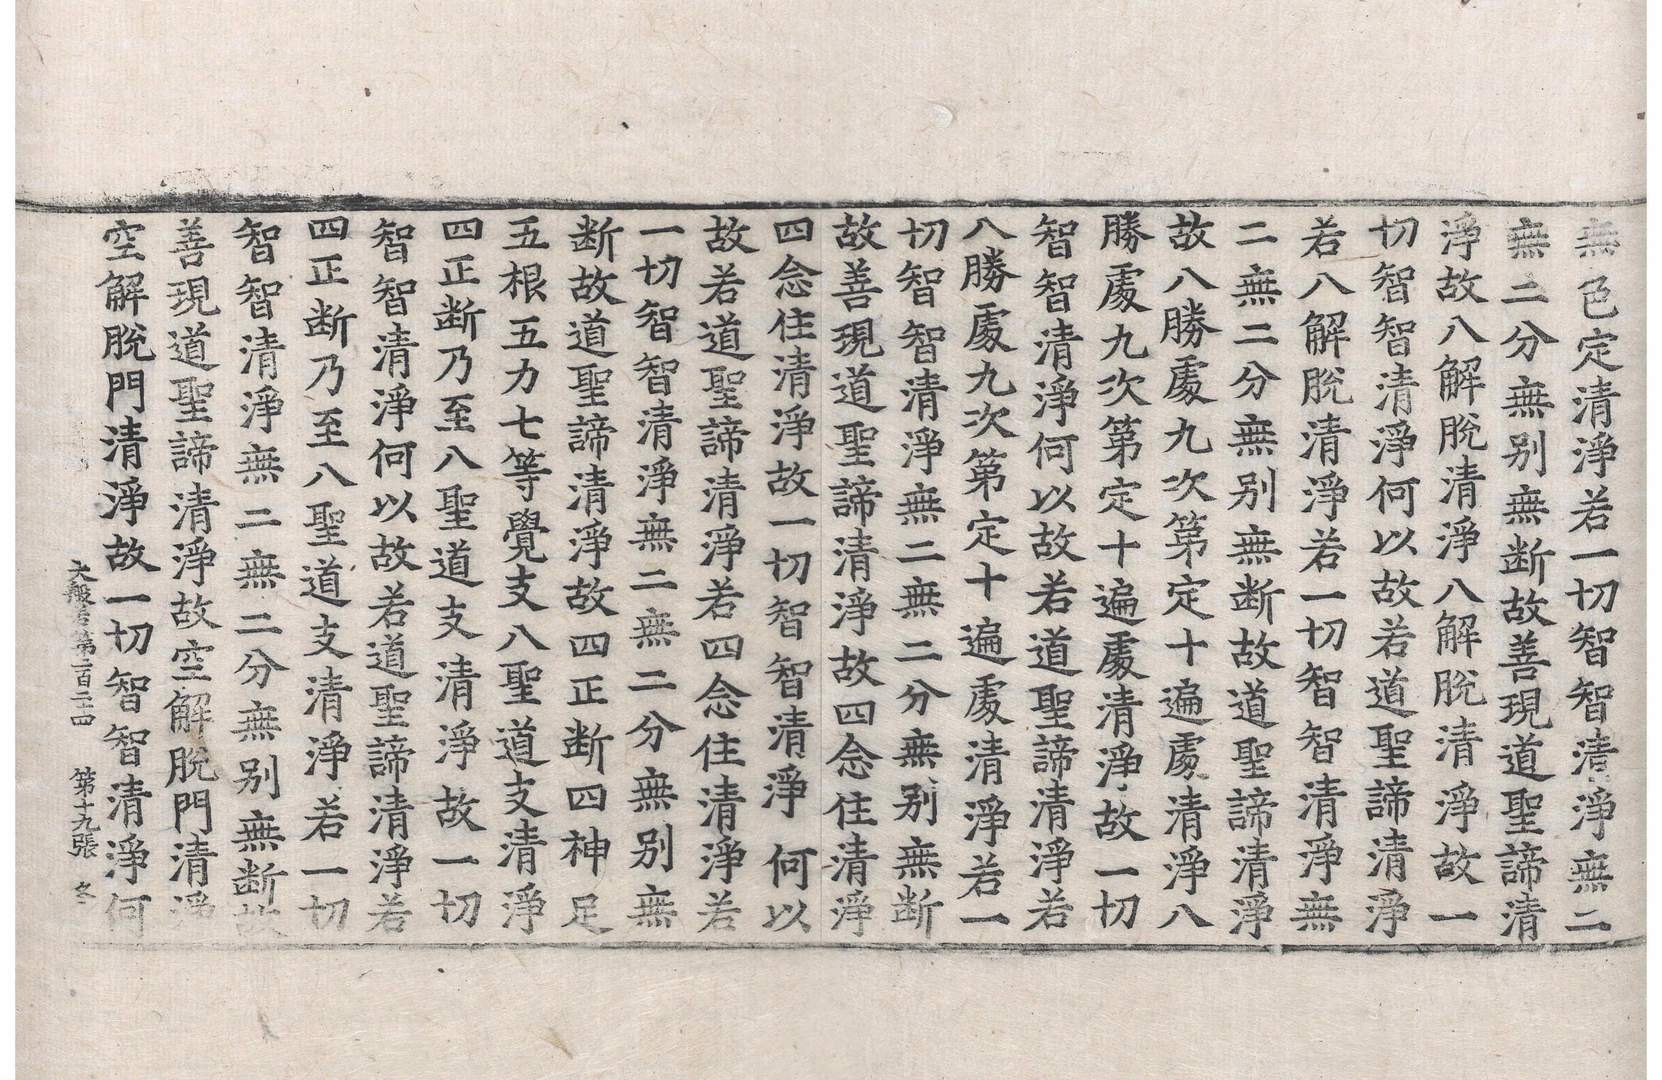 無色定清淨若一切智智清淨無二
無二分無別無断故善現道聖諦清
淨故八解脫清淨八解脫清淨故一
切智智清淨何以故若道聖諦清淨
若八解脫清淨若一切智智清淨無
二無二分無別無断故道聖諦清淨
故八勝處九次第定十遍處清淨八
勝處九次第定十遍處清淨故一切
智智清淨何以故若道聖諦清淨若
八勝處九次第定十遍處清淨若一
切智智清淨無二無二分無別無断
故善現道聖諦清淨故四念住清淨
四念住清淨故一切智智清淨何以
故若道聖諦清淨若四念住清淨若
一切智智清淨無二無二分無別無
断故道聖諦清淨故四正断四神足
五根五力七等覺支八聖道支清淨
四正断乃至八聖道支清淨故一切
智智清淨何以故若道聖諦清淨若
四正断乃至八聖道支清淨若一切
智智清淨無二無二分無別無断故
善現道聖諦清淨故空解脫門清淨
空解脫門清淨故一切智智清淨何
大般若第二百二十四 第十九張